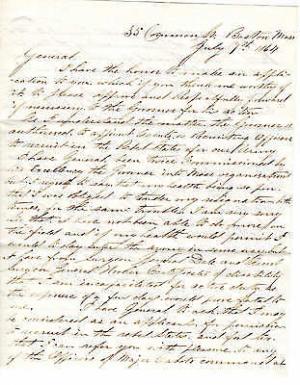 35 Common St. Boston Mass
July 7th 1864
General
I have the honor to make an appli-
cation to you which if you think me worthy of
it to please approve and respectfully forward
if necessary to the Governor for his
As I understand the matter the Governor is
authorized to appoint twenty or Recruiting Officers
to recruit in the Rebel States for our Army
I have General, been twice Commissioned by
his Excellency the Governor into Mass organizations
but I regret to say that my health being so poor
I was obliged to tender my resignation both
times, for the same troubles I am very sorry
that I have not been able to do more in
the field and if my health would permit I
would to day
I have from Surgeon General Dale and
Surgeon General Certificates of disability
but I am incapacitated for active duty as
the exposure of a few days would prostrate
me
I have General to ask that I may
be considered as an applicant for permission
to recruit in the rebel States, and feel
that I can refer you with pleasure to any
of the Officers of Major Cabots command as